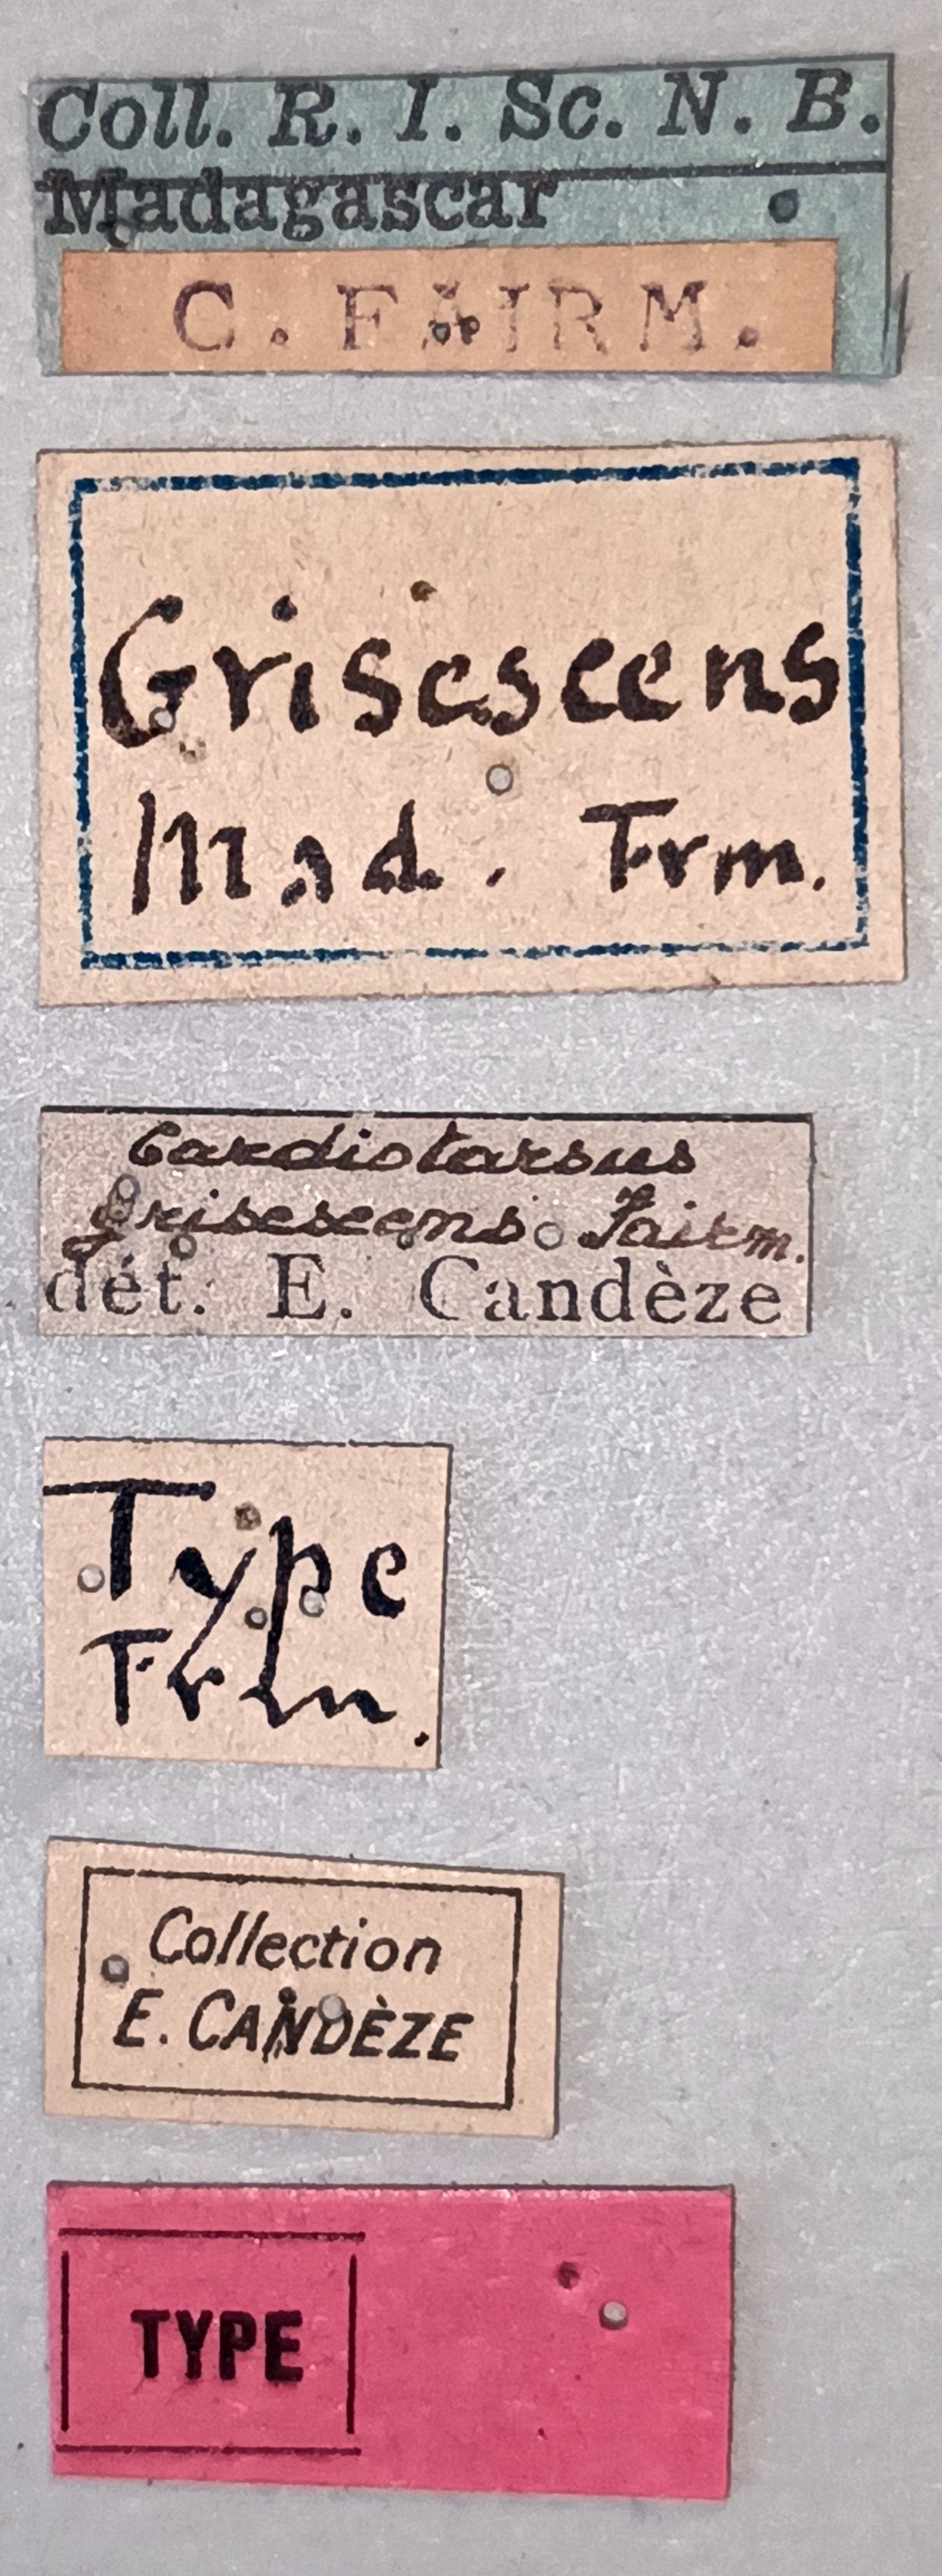 Coll. R. I. Sc. N. B.
Madagascar
C. FAIRM.
Grisescens
Mad. Frm.
Cardiotarsus
grisescens Fairm.
dét. E. Candèze
Type
Frm.
Collection
E. CANDÈZE
TYPE